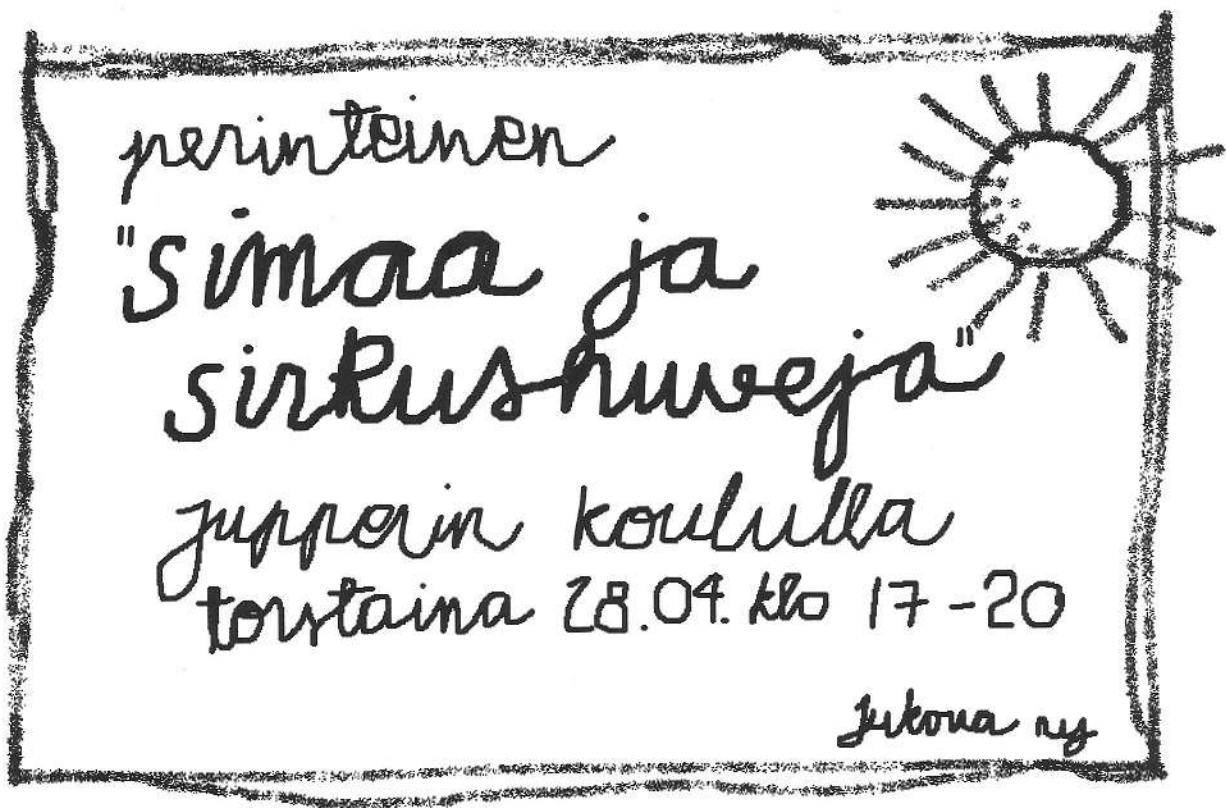 perinteinen
"simaa ja
sirkushuveja"
jupperin koululla
torstaina 28.04. klo 17-20
Jukova ry